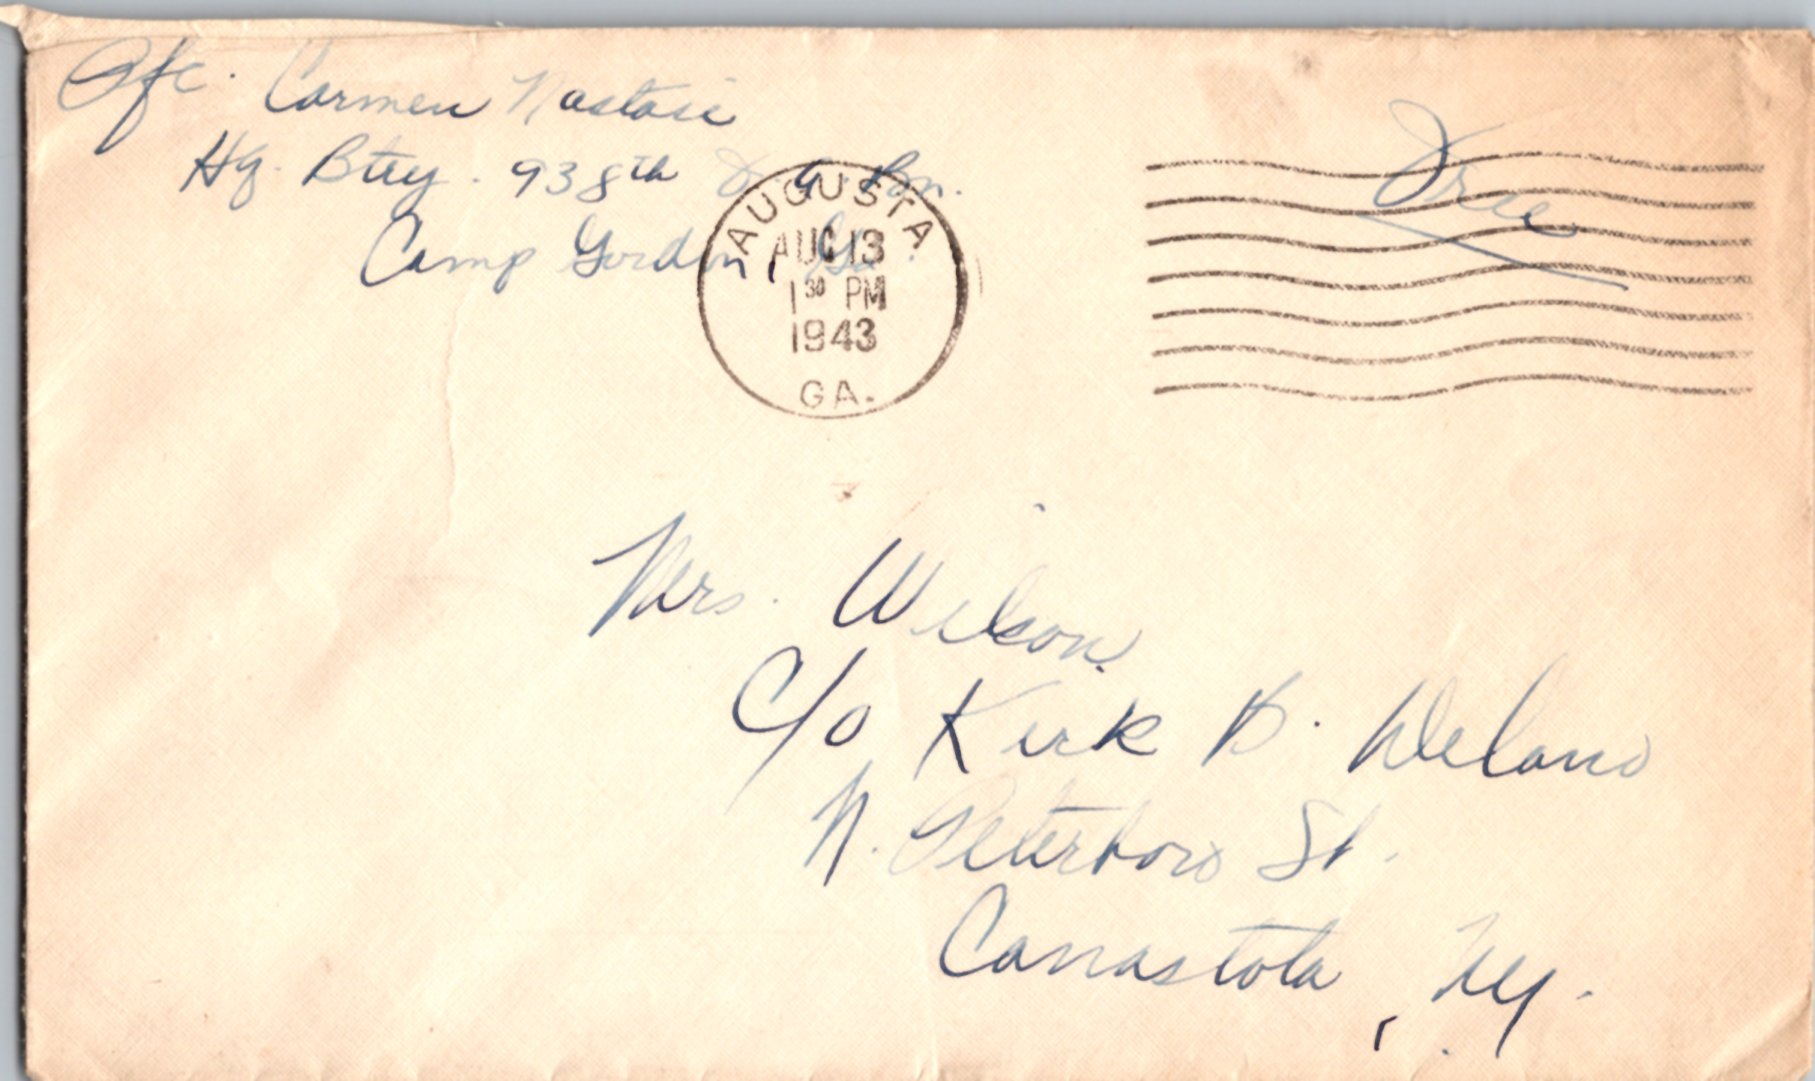 Pfc. Carmen Nastasi
Hq. Btry. 938th F. A. Bn.
Camp Gordon, Ga.
AUGUSTA
AUG 13
1 30 PM
1943
GA.
Free
Mrs. Wilson
C/o Kirk B. Delano
N. Peterboro St.
Canastota, N.Y.